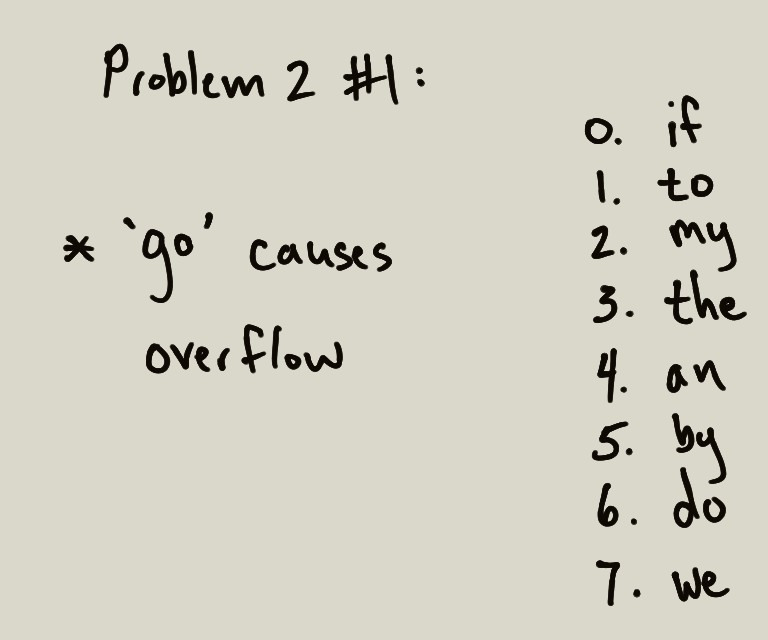 Problem 2 #1:
* `go' causes
overflow
0. if
1. to
2. my
3. the
4. an
5. by
6. do
7. we